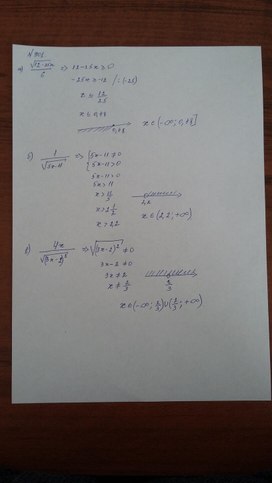 N 901.
а) √12-25x / 6 => 12-25x ≥ 0
-25x ≥ -12 /:(-25)
x ≤ 12/25
x ≤ 0,48
0,48 x ∈ (-∞; 0,48]
б) 1 / √5x-11 => { 5x-11 ≠ 0
5x-11 > 0
5x-11 > 0
5x > 11
x > 11/5
x > 2 1/5 2,2
x > 2,2 x ∈ (2,2; +∞)
в) 4x / √(3x-2)² => √(3x-2)² ≠ 0
3x-2 ≠ 0
3x ≠ 2
x ≠ 2/3 2/3
x ∈ (-∞; 2/3) ∪ (2/3; +∞)